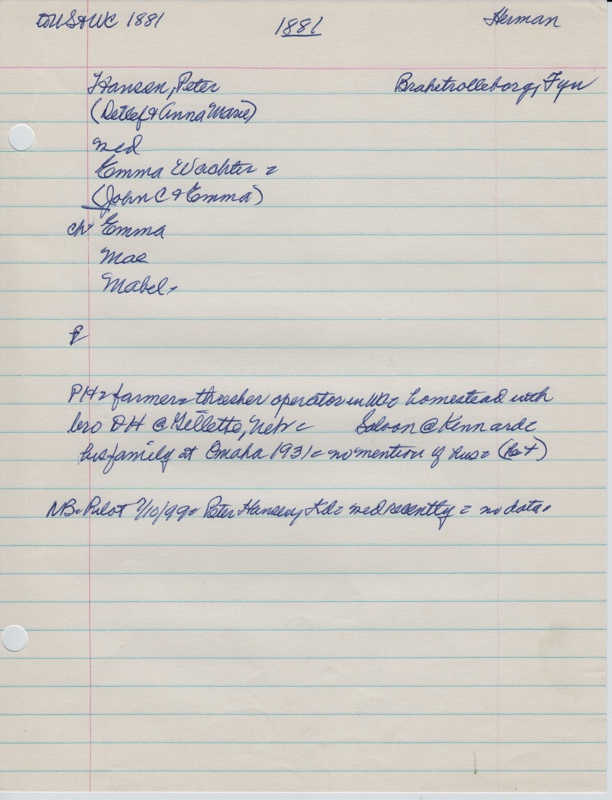 to US & WC 1881 1881 Herman
Hansen, Peter Brahetrolleborg, Fyn
(Detlef & Anna Marie)
med
Emma Wachter =
(John C & Emma)
ch Emma
Mae
Mabel -
PH = farmer = thresher operator in WC = homestead with
bro DH @ Gillette, Nebr = Saloon @ Kennard =
his family at Omaha 1931 = no mention of hus =
NB = Pilot 7/10/99 = Peter Hansen, Kd = med recently = no data.